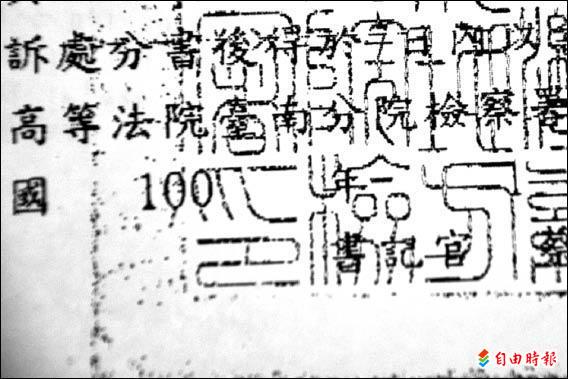 訴處分書後得於 日內以
高等法院臺南分院檢察署
國 100 年
書記官 蔡
自由時報